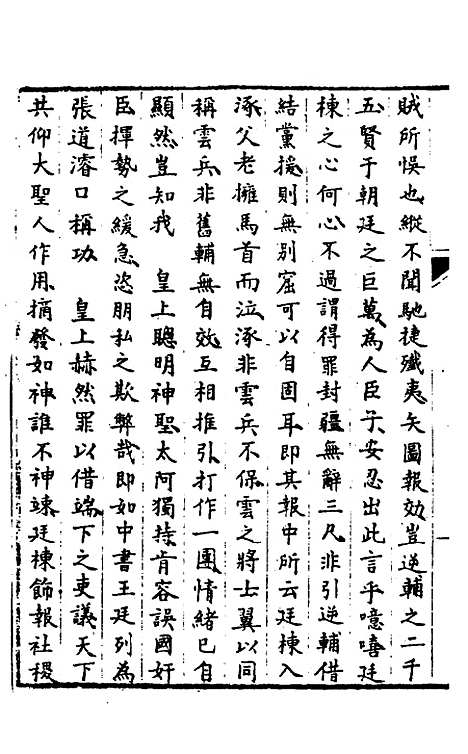 賊所悞也縱不聞馳捷殲夷矢圖報効豈逆輔之二千
五賢于朝廷之巨萬為人臣子安忍出此言乎噫嘻廷
棟之心何心不過謂得罪封疆無辭三尺非引逆輔借
結黨援則無別窟可以自固耳即其報中所云廷棟入
涿父老擁馬首而泣涿非雲兵不保雲之將士翼以同
稱雲兵非舊輔無自效互相推引打作一團情緒已自
顯然豈知我　皇上聰明神聖太阿獨持肯容誤國奸
臣揮勢之緩急恣朋私之欺弊哉即如中書王廷列為
張道濬口稱功　皇上赫然罪以借端下之吏議天下
共仰大聖人作用摘發如神誰不神竦廷棟飾報社稷